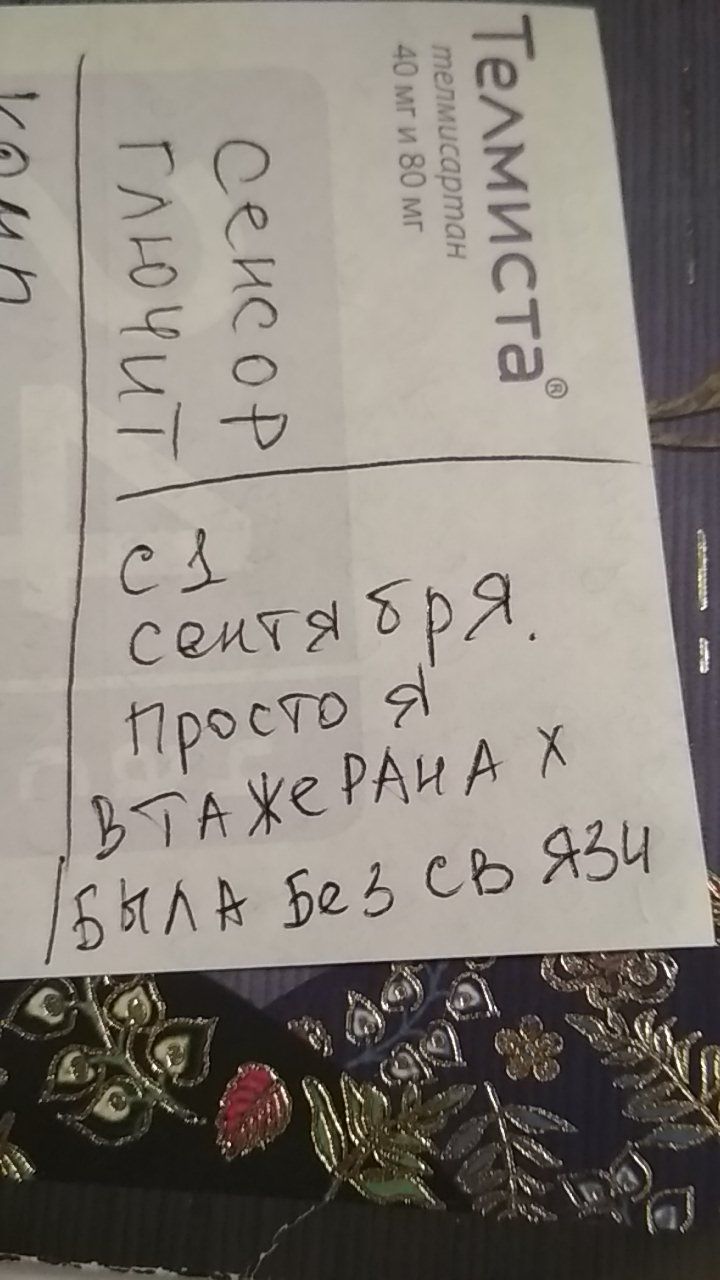 Телмиста®
телмисартан
40 мг и 80 мг
Сенсор
глючит
с 1
сентября.
Просто я
в ТАЖеРАНАХ
БЫЛА Без СВЯЗИ